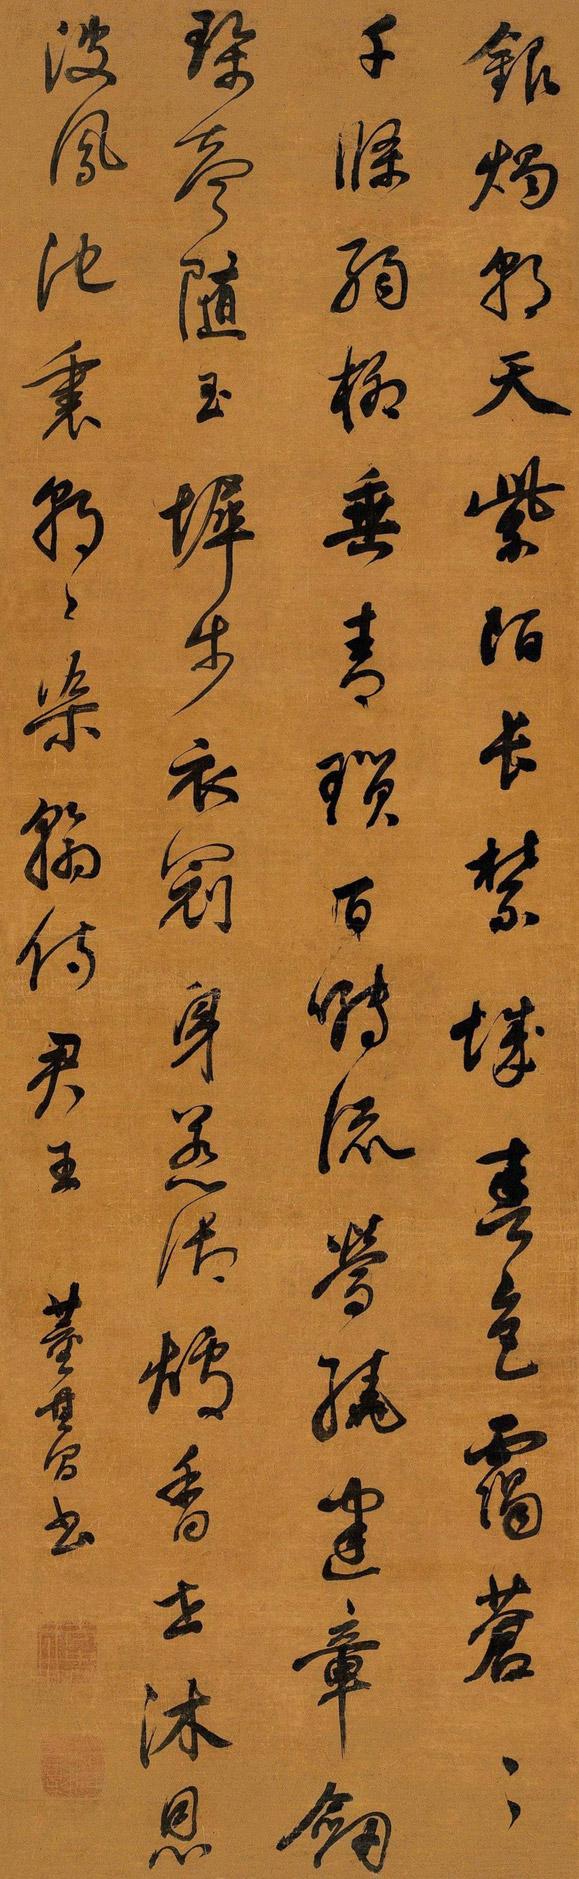 銀燭朝天紫陌長禁城春色靄蒼〻
千條弱柳垂青瑣百囀流鶯繞建章劔
珮聲隨玉墀步衣冠身惹御爐香共沐恩
波鳳池裏朝〻染翰侍君王 董其昌書